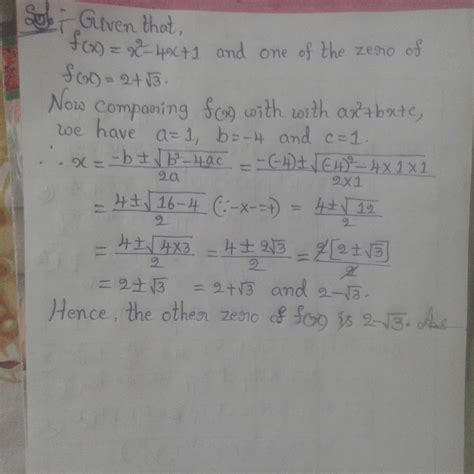 Sol:- Given that,
f(x) = x²-4x+1 and one of the zero of
f(x) = 2+√3.
Now comparing f(x) with with ax²+bx+c,
we have a=1, b=-4 and c=1.
∴ x = (-b±√(b²-4ac))/2a = (-(-4)±√((-4)²-4×1×1))/(2×1)
= (4±√(16-4))/2 (∵-x-=+) = (4±√12)/2
= (4±√(4×3))/2 = (4±2√3)/2 = 2[2±√3]/2
= 2±√3 = 2+√3 and 2-√3.
Hence, the other zero of f(x) is 2-√3. Ans